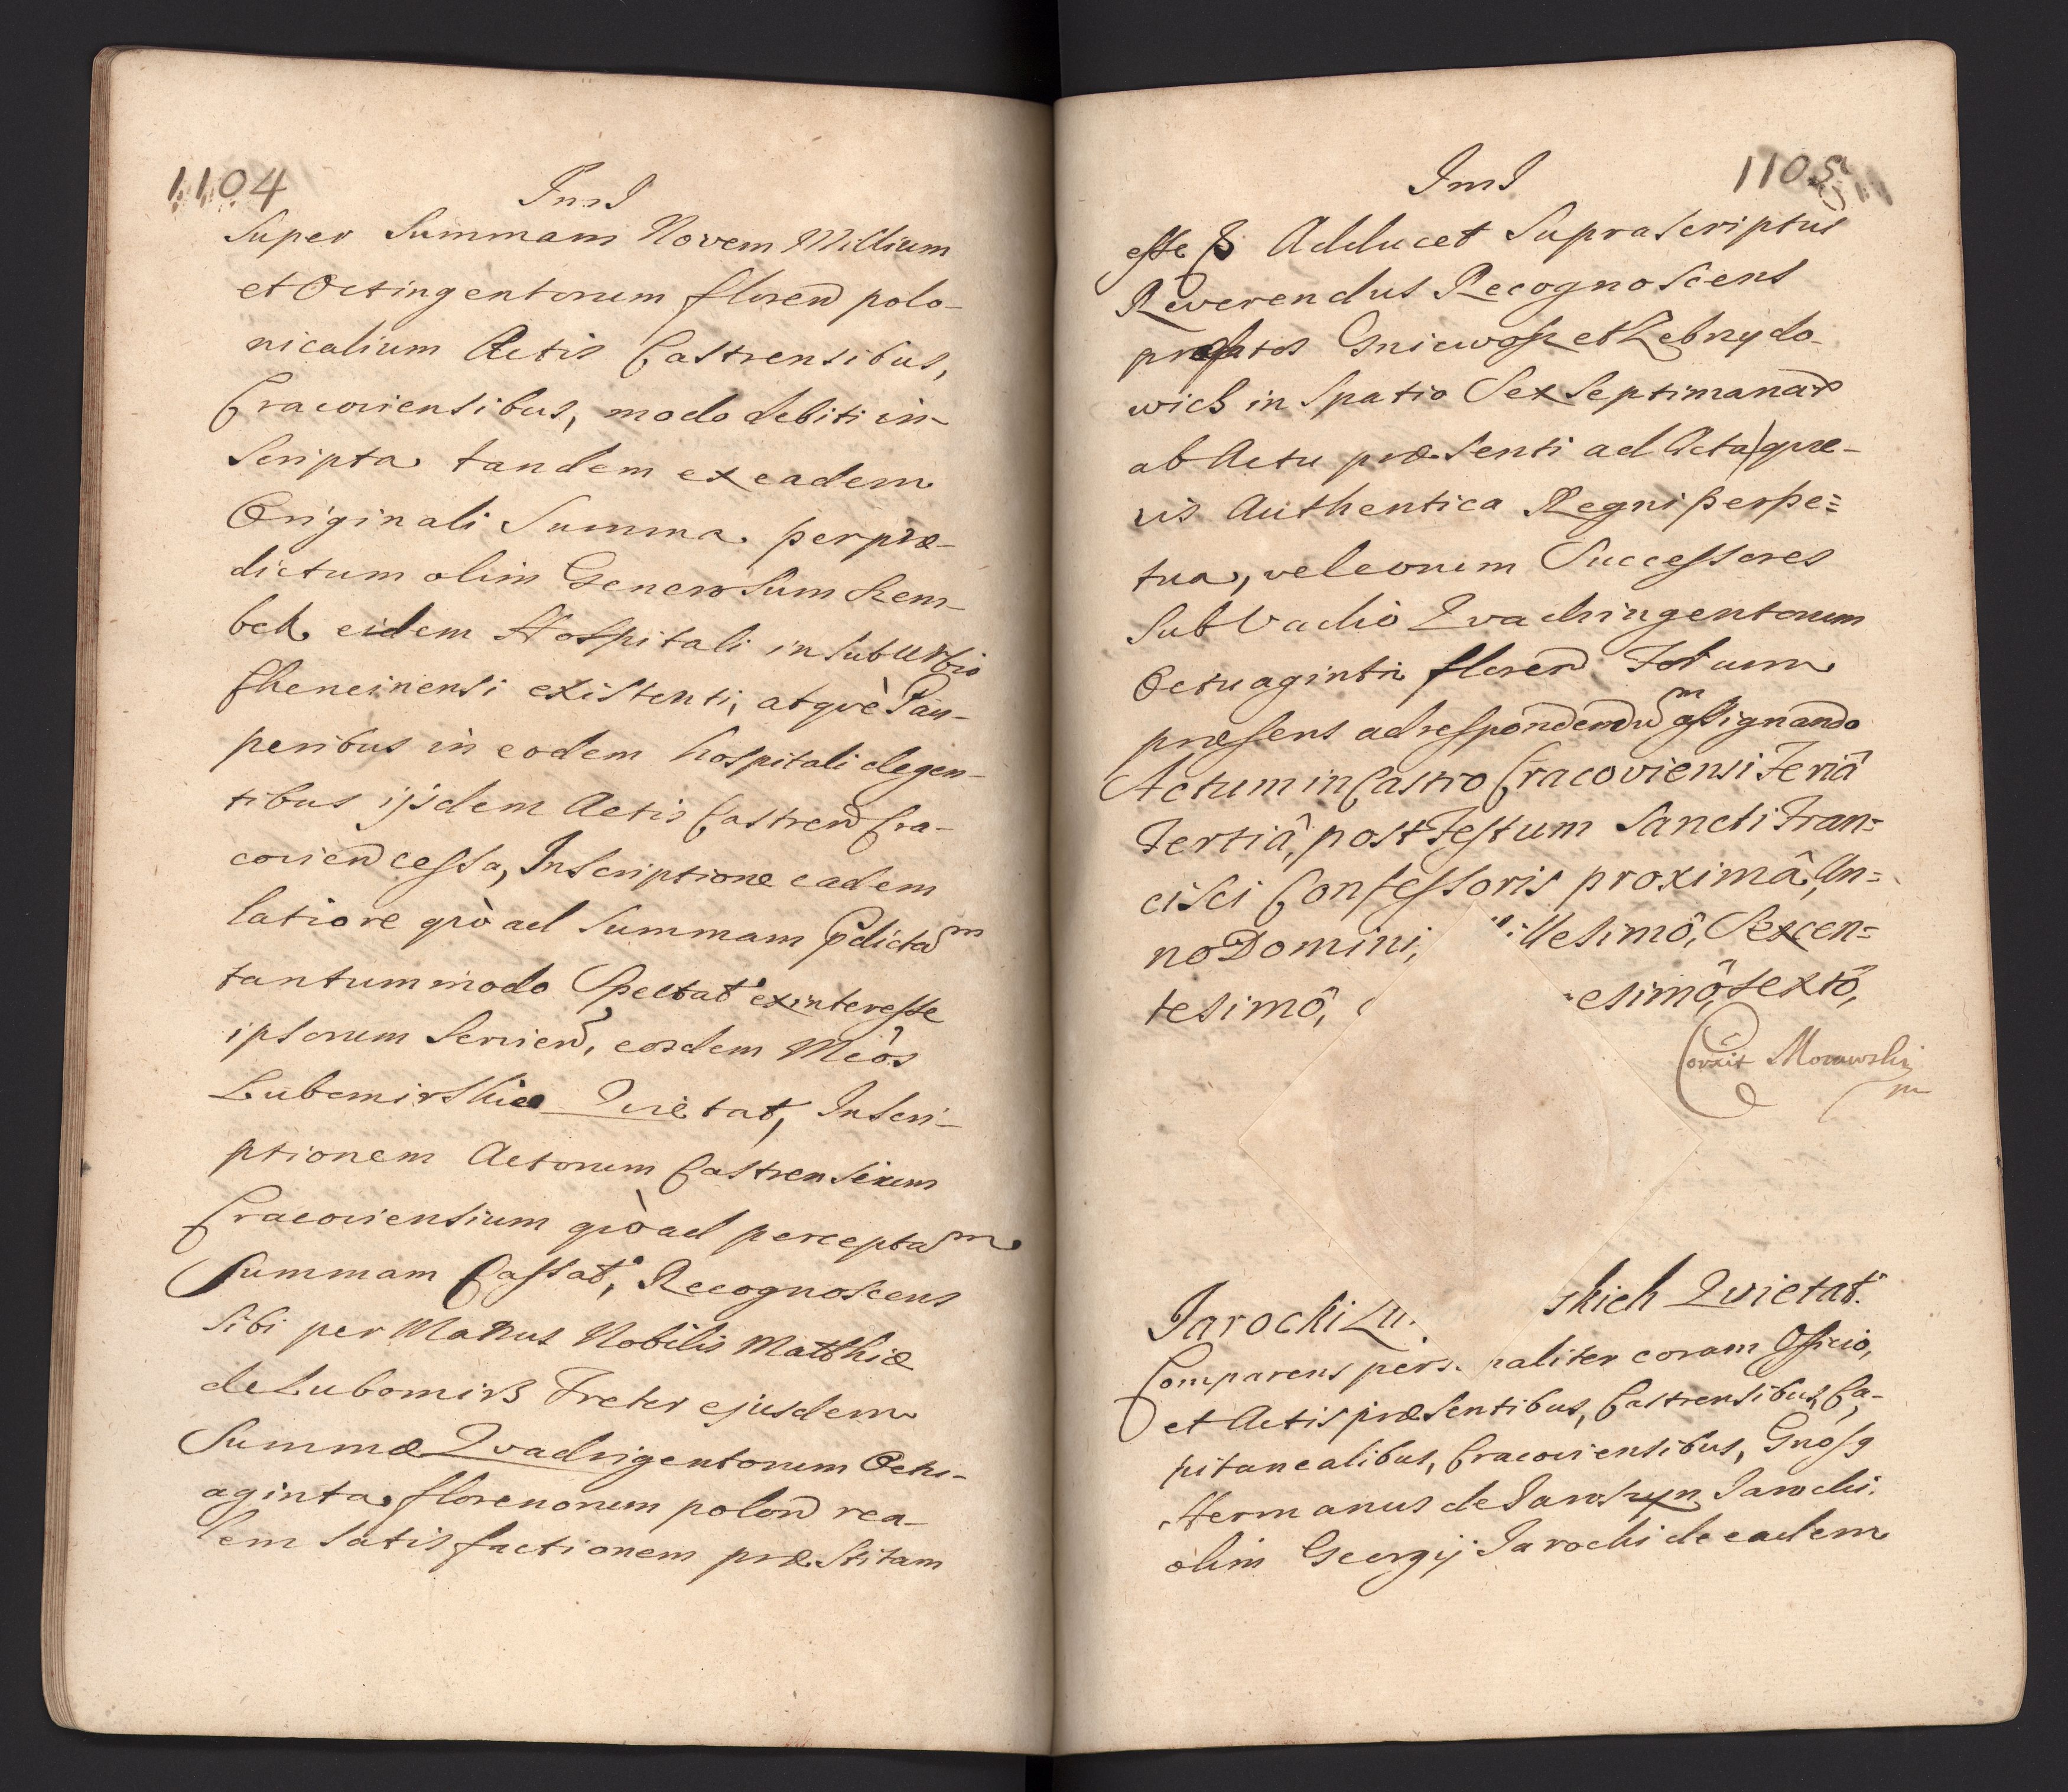 1104
ImI
Super Summam Novem Millium
et Octingentorum floren polo-
nicalium Actis Castrensibus,
Cracoviensibus, modo debiti in-
scripta tandem ex eadem
Originali Summa per præ-
dictum olim Generosum Szem-
bek eidem Hospitali in suburbio
Checinensi existenti, atqvè Pau-
peribus in eodem hospitali degen-
tibus ijsdem Actis Castren Cra-
covien cessa, Inscriptione eadem
latiore qvò ad Summam pdictam
tantummodo Spectat ex interesse
ipsorum Servien, eosdem Mcôs
Lubomirskie Qvietat, Inscri-
ptionem Actorum Castrensium
Cracoviensium qvò ad perceptam
Summam Cassat, Recognoscens
sibi per Manus Nobilis Matthiæ
de Lubomirz Treter ejusdem
Summæ Qvadrigentorum Octu-
aginta florenorum polon rea-
lem Satisfactionem præstitam
1105
ImI
esse Adducet Suprascriptus
Reverendus Recognoscens
præfatos Gniewosz et Zebrzydo-
wich in Spatio Sex Septimanar
ab Actu præsenti ad Acta quæ-
vis Authentica Regni perpe=
tua, vel eorum Successores
Sub Vadio Qvadringentorum
Octuaginta floren Forum
præsens ad respondendum assignando
Actum in Castro Cracoviensi Feriâ
Tertiâ, post Festum Sancti Fran=
cisci Confessoris proximâ, An=
no Domini, illesimô, Sexcen=
tesimô, esimô, sextô,
Corrit Morawski
m
Jarocki Lu skich Qvietat.
Comparens pers naliter coram Officio,
et Actis præsentibus, Castrensibus, Ca-
pitanealibus, Cracoviensibus, Gnosg
Hermanus de Jaroszyn Jarocki
olim Georgij Jarocki de eadem